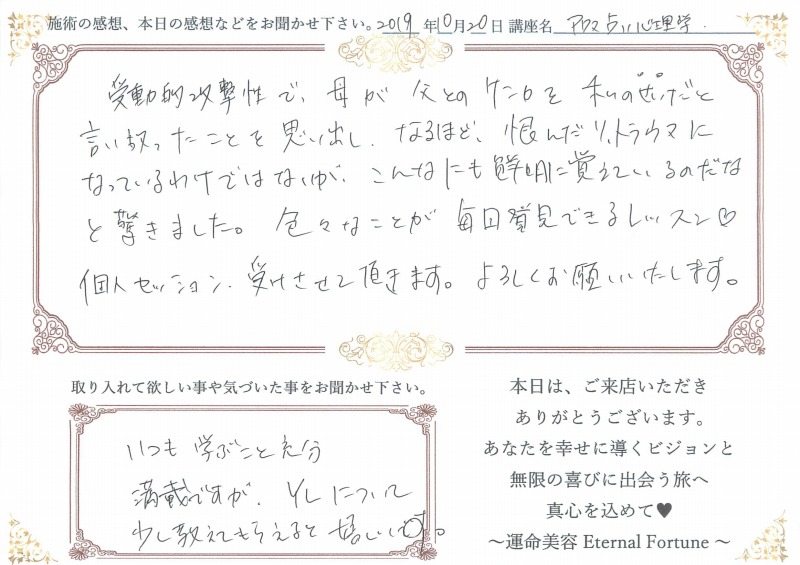 施術の感想、本日の感想などをお聞かせ下さい。2019年10月20日 講座名 アロマ占い心理学.
受動的攻撃性で、母が父とのケンカを私のせいだと
言い放ったことを思い出し、なるほど、恨んだり、トラウマに
なっているわけではないが、こんなにも鮮明に覚えているのだな
と驚きました。色々なことが毎日発見できるレッスン♡
個人セッション、受けさせて頂きます。よろしくお願いいたします。
取り入れて欲しい事や気づいた事をお聞かせ下さい。
いつも学ぶこと充分
満載ですが、YLについて
少し教えてもらえると嬉しいです。
本日は、ご来店いただき
ありがとうございます。
あなたを幸せに導くビジョンと
無限の喜びに出会う旅へ
真心を込めて♥
～運命美容 Eternal Fortune～